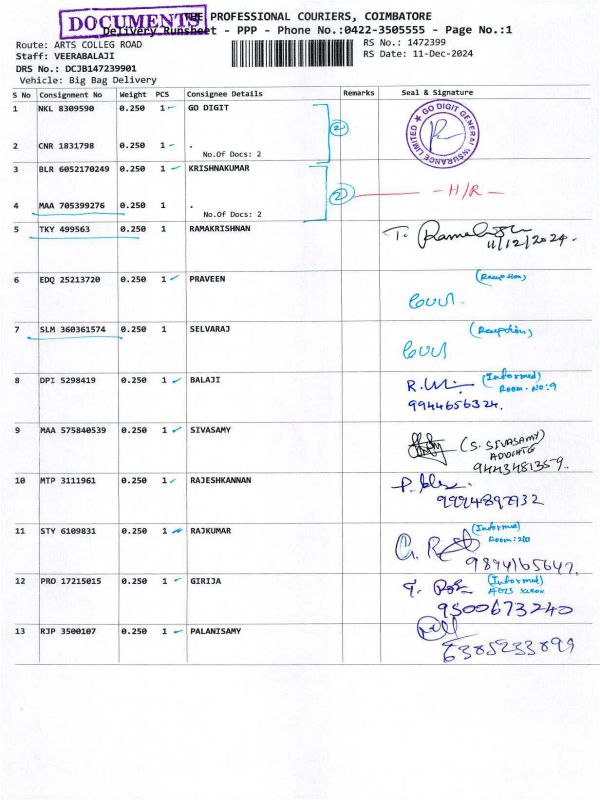 DOCUMENTS
THE PROFESSIONAL COURIERS, COIMBATORE
Delivery Runsheet - PPP - Phone No.:0422-3505555 - Page No.:1
Route: ARTS COLLEG ROAD
RS No.: 1472399
Staff: VEERABALAJI
RS Date: 11-Dec-2024
DRS No.: DCJB147239901
Vehicle: Big Bag Delivery
S No Consignment No Weight PCS Consignee Details Remarks Seal & Signature
1 NKL 8309590 0.250 1 GO DIGIT
GO DIGIT GENERAL INSURANCE LIMITED
2
2 CNR 1831798 0.250 1 .
No.Of Docs: 2
3 BLR 6052170249 0.250 1 KRISHNAKUMAR
2 - H/R -
4 MAA 705399276 0.250 1 .
No.Of Docs: 2
5 TKY 499563 0.250 1 RAMAKRISHNAN
11/12/2024.
6 EDQ 25213720 0.250 1 PRAVEEN (Reception)
7 SLM 360361574 0.250 1 SELVARAJ (Reception)
8 DPI 5298419 0.250 1 BALAJI (Informed)
Room.No:9
9944656324.
9 MAA 575840539 0.250 1 SIVASAMY
(S. SIVASAMY)
10 MTP 3111961 0.250 1 RAJESHKANNAN
11 STY 6109831 0.250 1 RAJKUMAR (Informed)
Room:210
12 PRO 17215015 0.250 1 GIRIJA (Informed)
9500673240
13 RJP 3500107 0.250 1 PALANISAMY